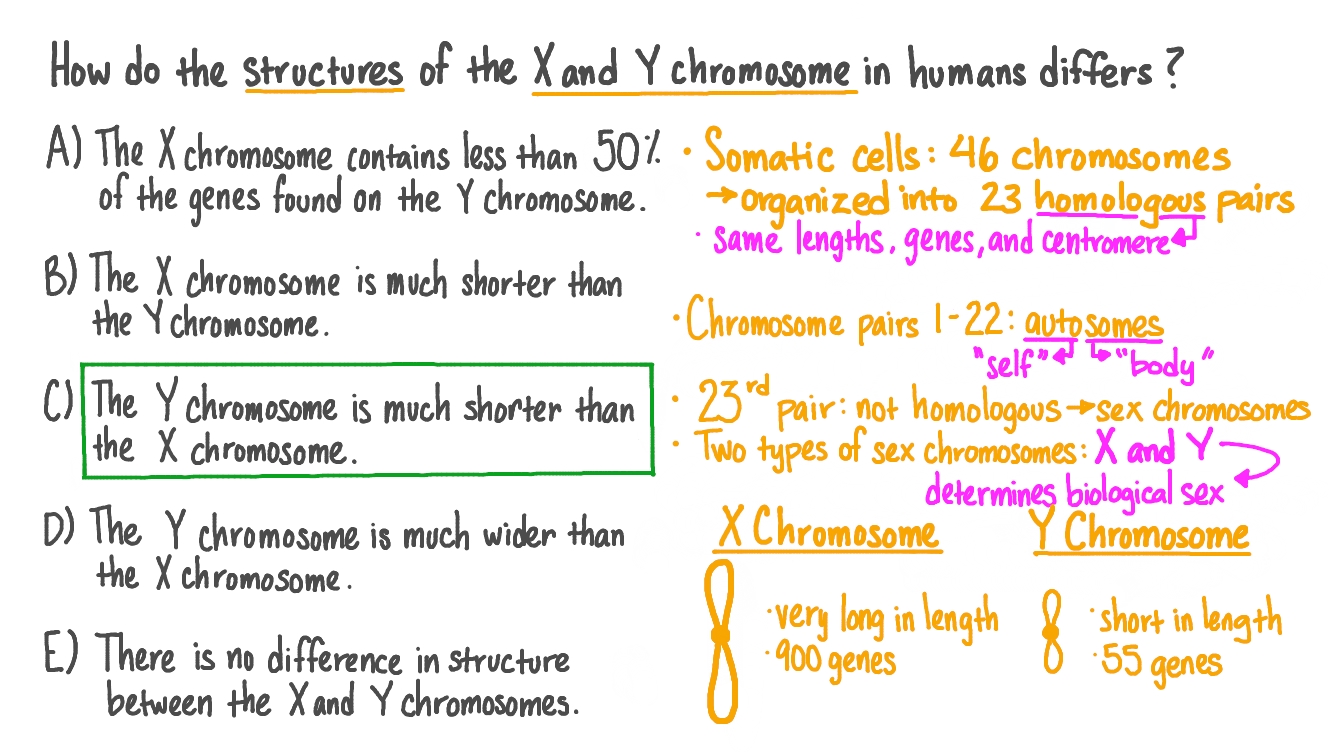 How do the structures of the X and Y chromosome in humans differs?
A) The X chromosome contains less than 50%
of the genes found on the Y chromosome.
B) The X chromosome is much shorter than
the Y chromosome.
C) The Y chromosome is much shorter than
the X chromosome.
D) The Y chromosome is much wider than
the X chromosome.
E) There is no difference in structure
between the X and Y chromosomes.
· Somatic cells: 46 chromosomes
→ organized into 23 homologous pairs
· same lengths, genes, and centromere
· Chromosome pairs 1-22: autosomes
"self" "body"
· 23rd pair: not homologous → sex chromosomes
· Two types of sex chromosomes: X and Y
determines biological sex
X Chromosome
· very long in length
· 900 genes
Y Chromosome
· short in length
· 55 genes